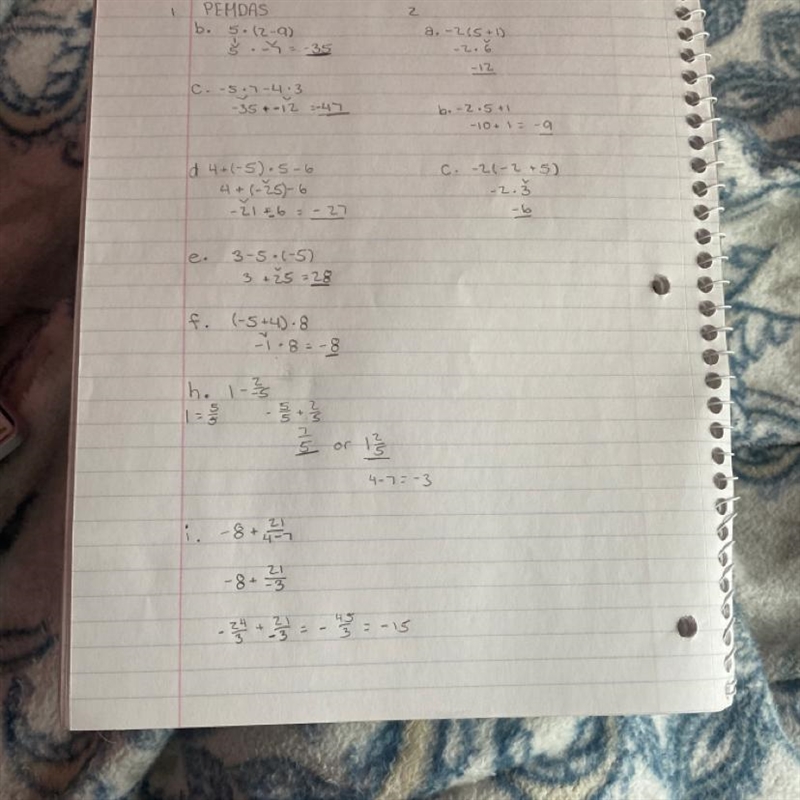 1 PEMDAS
b. 5 · (2-9)
5 · -7 = -35
c. -5 · 7 - 4 · 3
-35 + -12 = -47
d 4 + (-5) · 5 - 6
4 + (-25) - 6
-21 - 6 = -27
e. 3 - 5 · (-5)
3 + 25 = 28
f. (-5+4) · 8
-1 · 8 = -8
h. 1 - 2/-5
1 = 5/5 - 5/5 + 2/5
7/5 or 1 2/5
4-7 = -3
i. -8 + 21/4-7
-8 + 21/-3
-24/3 + 21/-3 = -45/3 = -15
2
a. -2(5+1)
-2 · 6
-12
b. -2 · 5 + 1
-10 + 1 = -9
c. -2(-2 + 5)
-2 · 3
-6